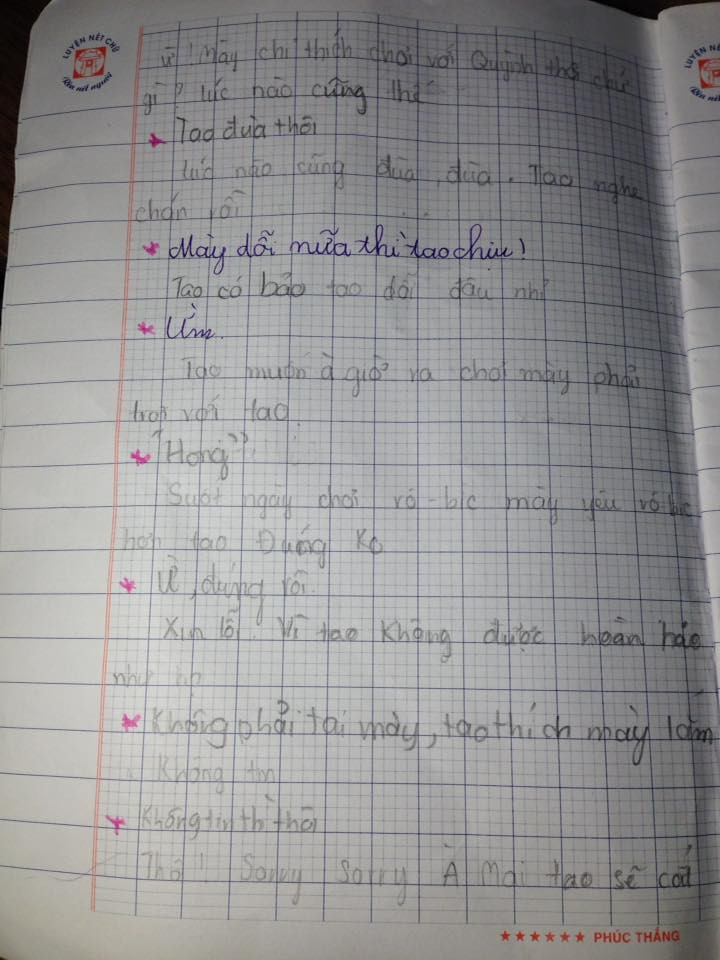 LUYỆN NÉT CHỮ
Rèn nết người
ừ! Mày chỉ thích chơi với Quỳnh thôi chứ
gì" lúc nào cũng thế
* Tao đùa thôi
lúc nào cũng đùa, đùa. Tao nghe
chán rồi
* Mày dỗi nữa thì tao chịu!
Tao có bảo tao dỗi đâu nhỉ
* Ừm.
Tao muốn à giờ ra chơi mày phải
trơi với tao.
* "Hong"
Suốt ngày chơi rô-bic mày yêu rô bic
hơn tao Đướng Ko
* Ừ, đúng rồi.
Xin lỗi. Vì tao không được hoàn hảo
như
* Không phải tại mày, tao thích mày lắm
Không tin
* Không tin thì thôi
Thôi! Sorry Sorry À Mai tao sẽ
★★★★★★ PHÚC THẮNG